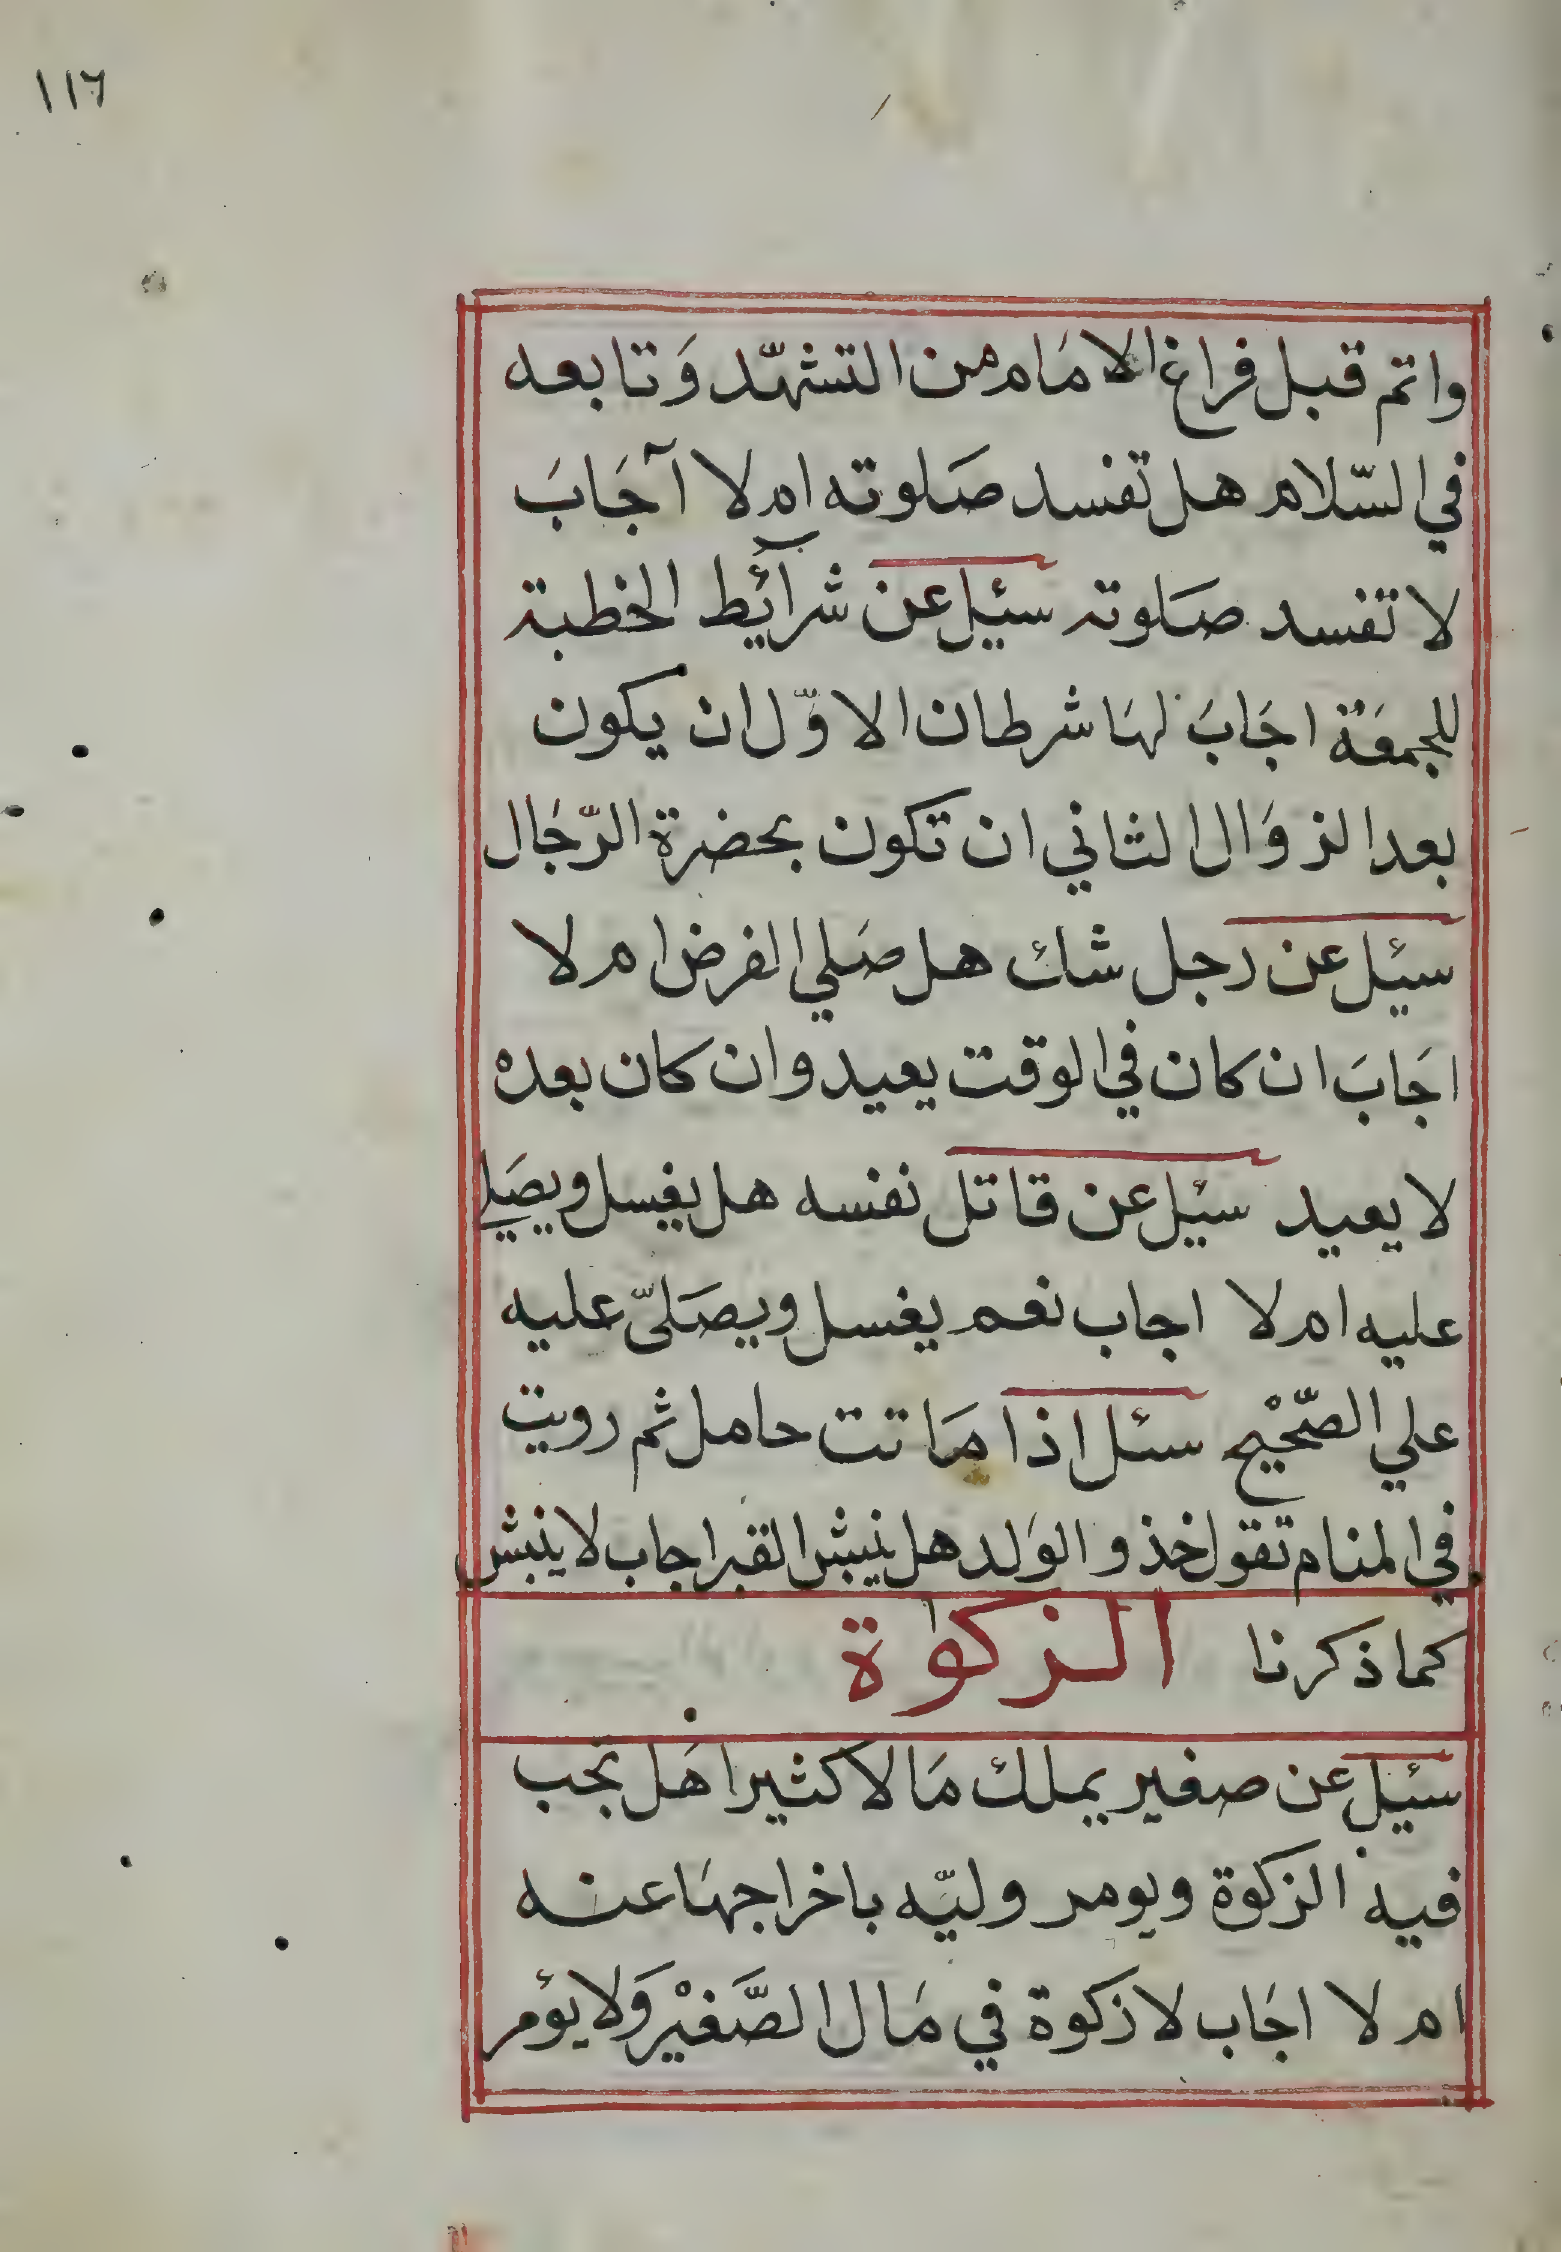 ١١٦
واتم قبل فراغ الامَام من التشهّد وَتابعه
في السّلام هل تفسد صَلوته ام لا آجَابَ
لا تفسد صَلوته سئيل عن شرآئيط الخطبة
للجمعَة اجَابَ لهَا شرطان الاوّل ان يكون
بعد الزوَال الثاني ان تكون بحضرة الرّجَال
سئيل عن رجل شك هل صَلي الفرض ام لا
اجَابَ ان كان في الوقت يعيد وان كان بعده
لا يعيد سئيل عن قاتل نفسه هل يغسل ويصَلي
عليه ام لا اجاب نعم يغسل ويصَلىّ عليه
علي الصّحْيح سئل اذا مَاتت حامل ثم رويت
في المنام تقول خذو الوَلد هل ينبش القبر اجاب لا ينبش
كما ذكرنا الزكوٰة
سئيل عن صغير يملك مَالا كثيرا هَل تجب
فيه الزكوة ويومر وليّه باخراجهَا عنه
ام لا اجَاب لا زكوة في مَال الصَّغيْر وَلا يؤمر